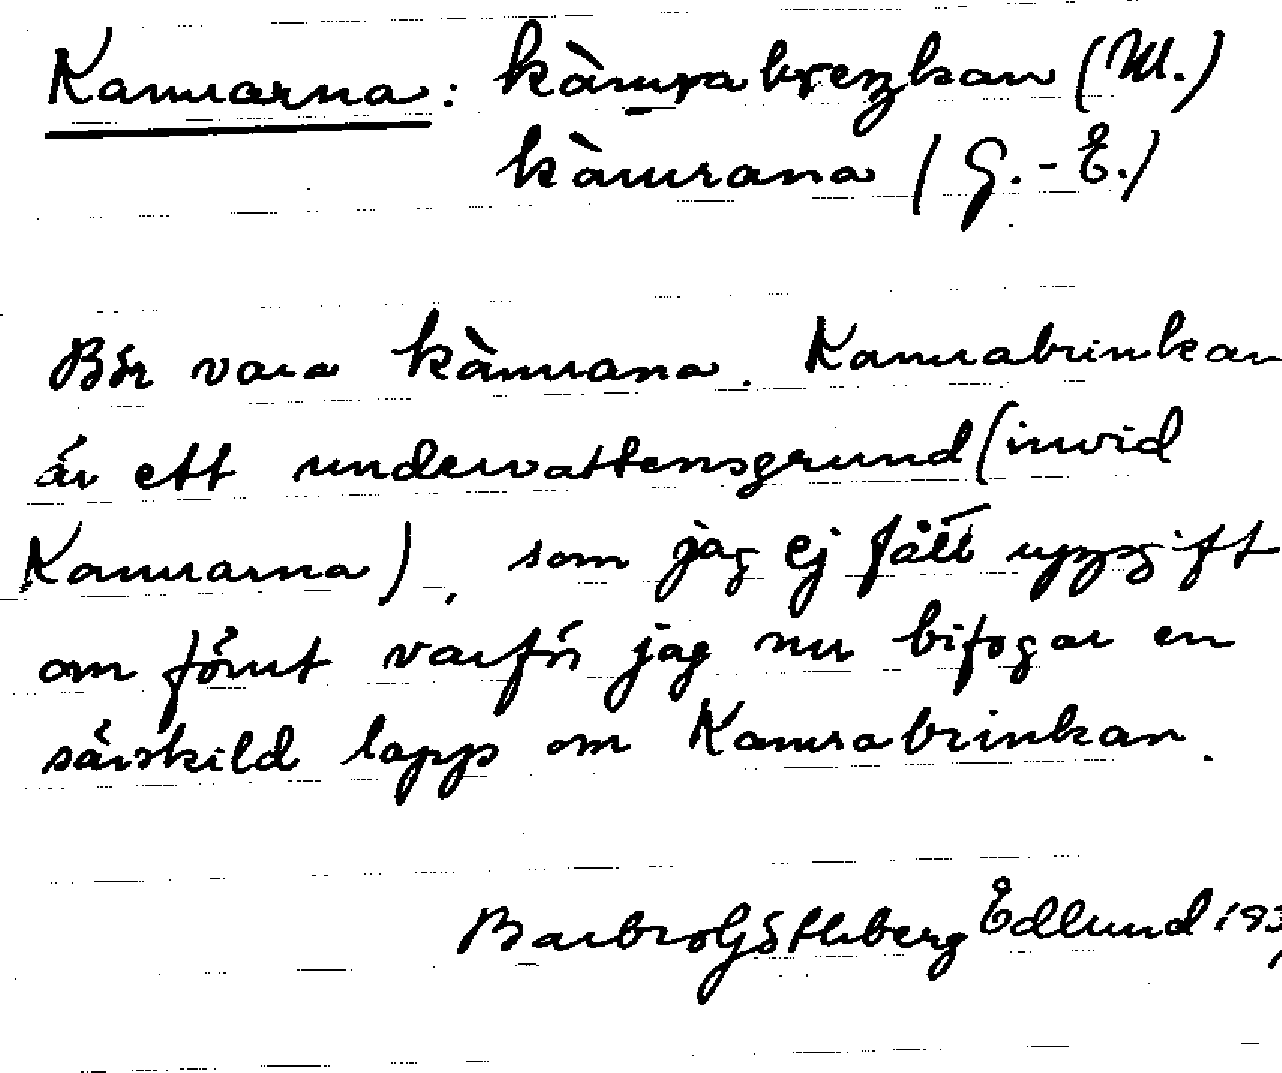 Kamrarna: kàmrabreŋkan (M.)
kàmrana (G.-E.)
Bör vara kàmrana. Kamrabrinkan
är ett undervattensgrund (invid
Kamrarna), som jag ej fått uppgift
om förut varför jag nu bifogar en
särskild lapp om Kamrabrinkan.
Barbro Edlund 193